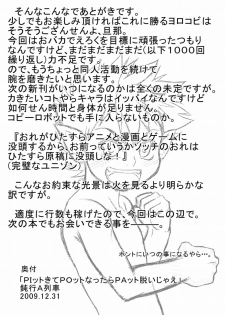 そんなこんなであとがきです。
少しでもお楽しみ頂ければこれに勝るヨロコビは
そうそうございませんよ、旦那。
今回はおバカでえろくを目標に頑張ったつもり
なんですけど、まだまだまだまだ(以下1000回
繰り返し)力不足です。
ので、もうちょっと同人活動を続けて
腕を磨きたいと思います。
次の新刊がいつになるのかは全くの未定ですが、
かきたいコトやキャラはイッパイなんですけど
如何せん時間と身体が足りません。
コピーロボットでも手に入らないものか。
『おれがひたすらアニメと漫画とゲームに
没頭するから、お前っていうかソッチのおれは
ひたすら原稿に没頭しな！』
(完璧なユニゾン)
こんなお約束な光景は火を見るより明らかな
訳ですが。
適度に行数も稼げたので、今回はこの辺で。
次の本でもお会いできる事を…。
ホントにいつの事になるやら…。
奥付
「PIットきてPOットなったらPAット脱いじゃえ」
鈍行A列車
2009.12.31